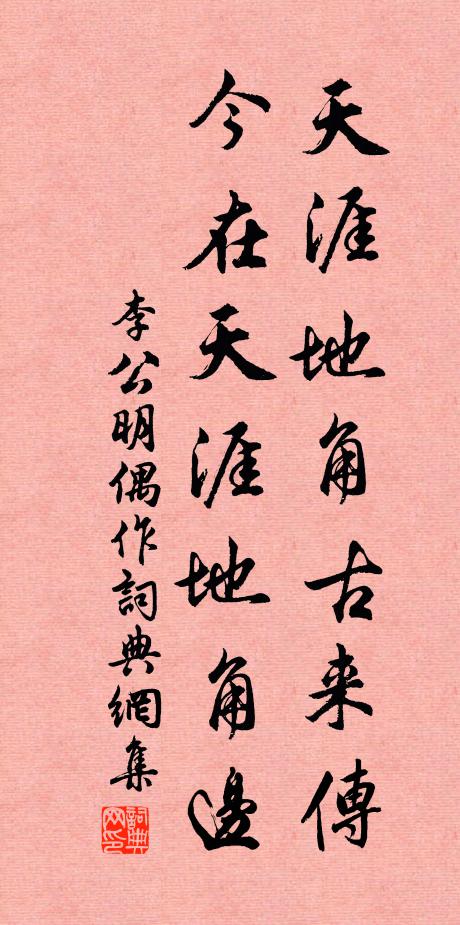 天涯地角古来傳
今在天涯地角邊
李公明偶作詞典網集
詞典
网印